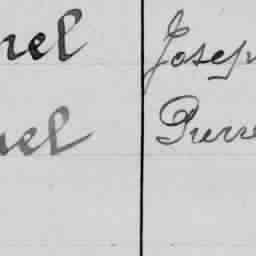 nel Joseph
uel Pierre